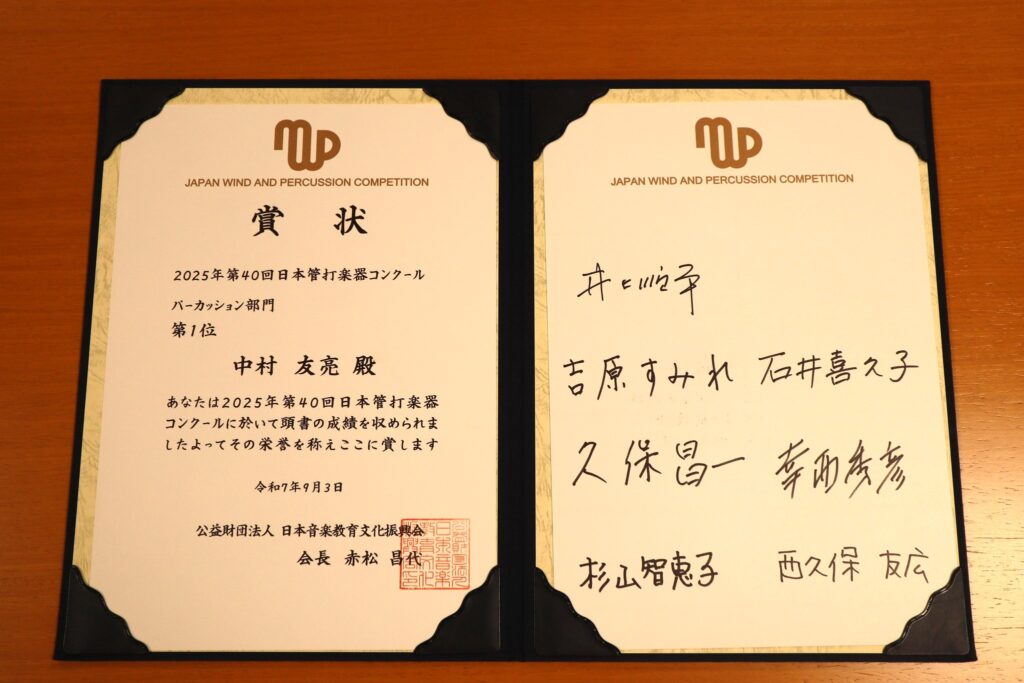 JAPAN WIND AND PERCUSSION COMPETITION
賞 状
2025年第40回日本管打楽器コンクール
パーカッション部門
第1位
中村 友亮 殿
あなたは2025年第40回日本管打楽器
コンクールに於いて頭書の成績を収められま
したよってその栄誉を称えここに賞します
令和7年9月3日
公益財団法人 日本音楽教育文化振興会
会長 赤松 昌代
JAPAN WIND AND PERCUSSION COMPETITION
吉原すみれ 石井喜久子
久保昌一 幸西秀彦
杉山智恵子 西久保 友広